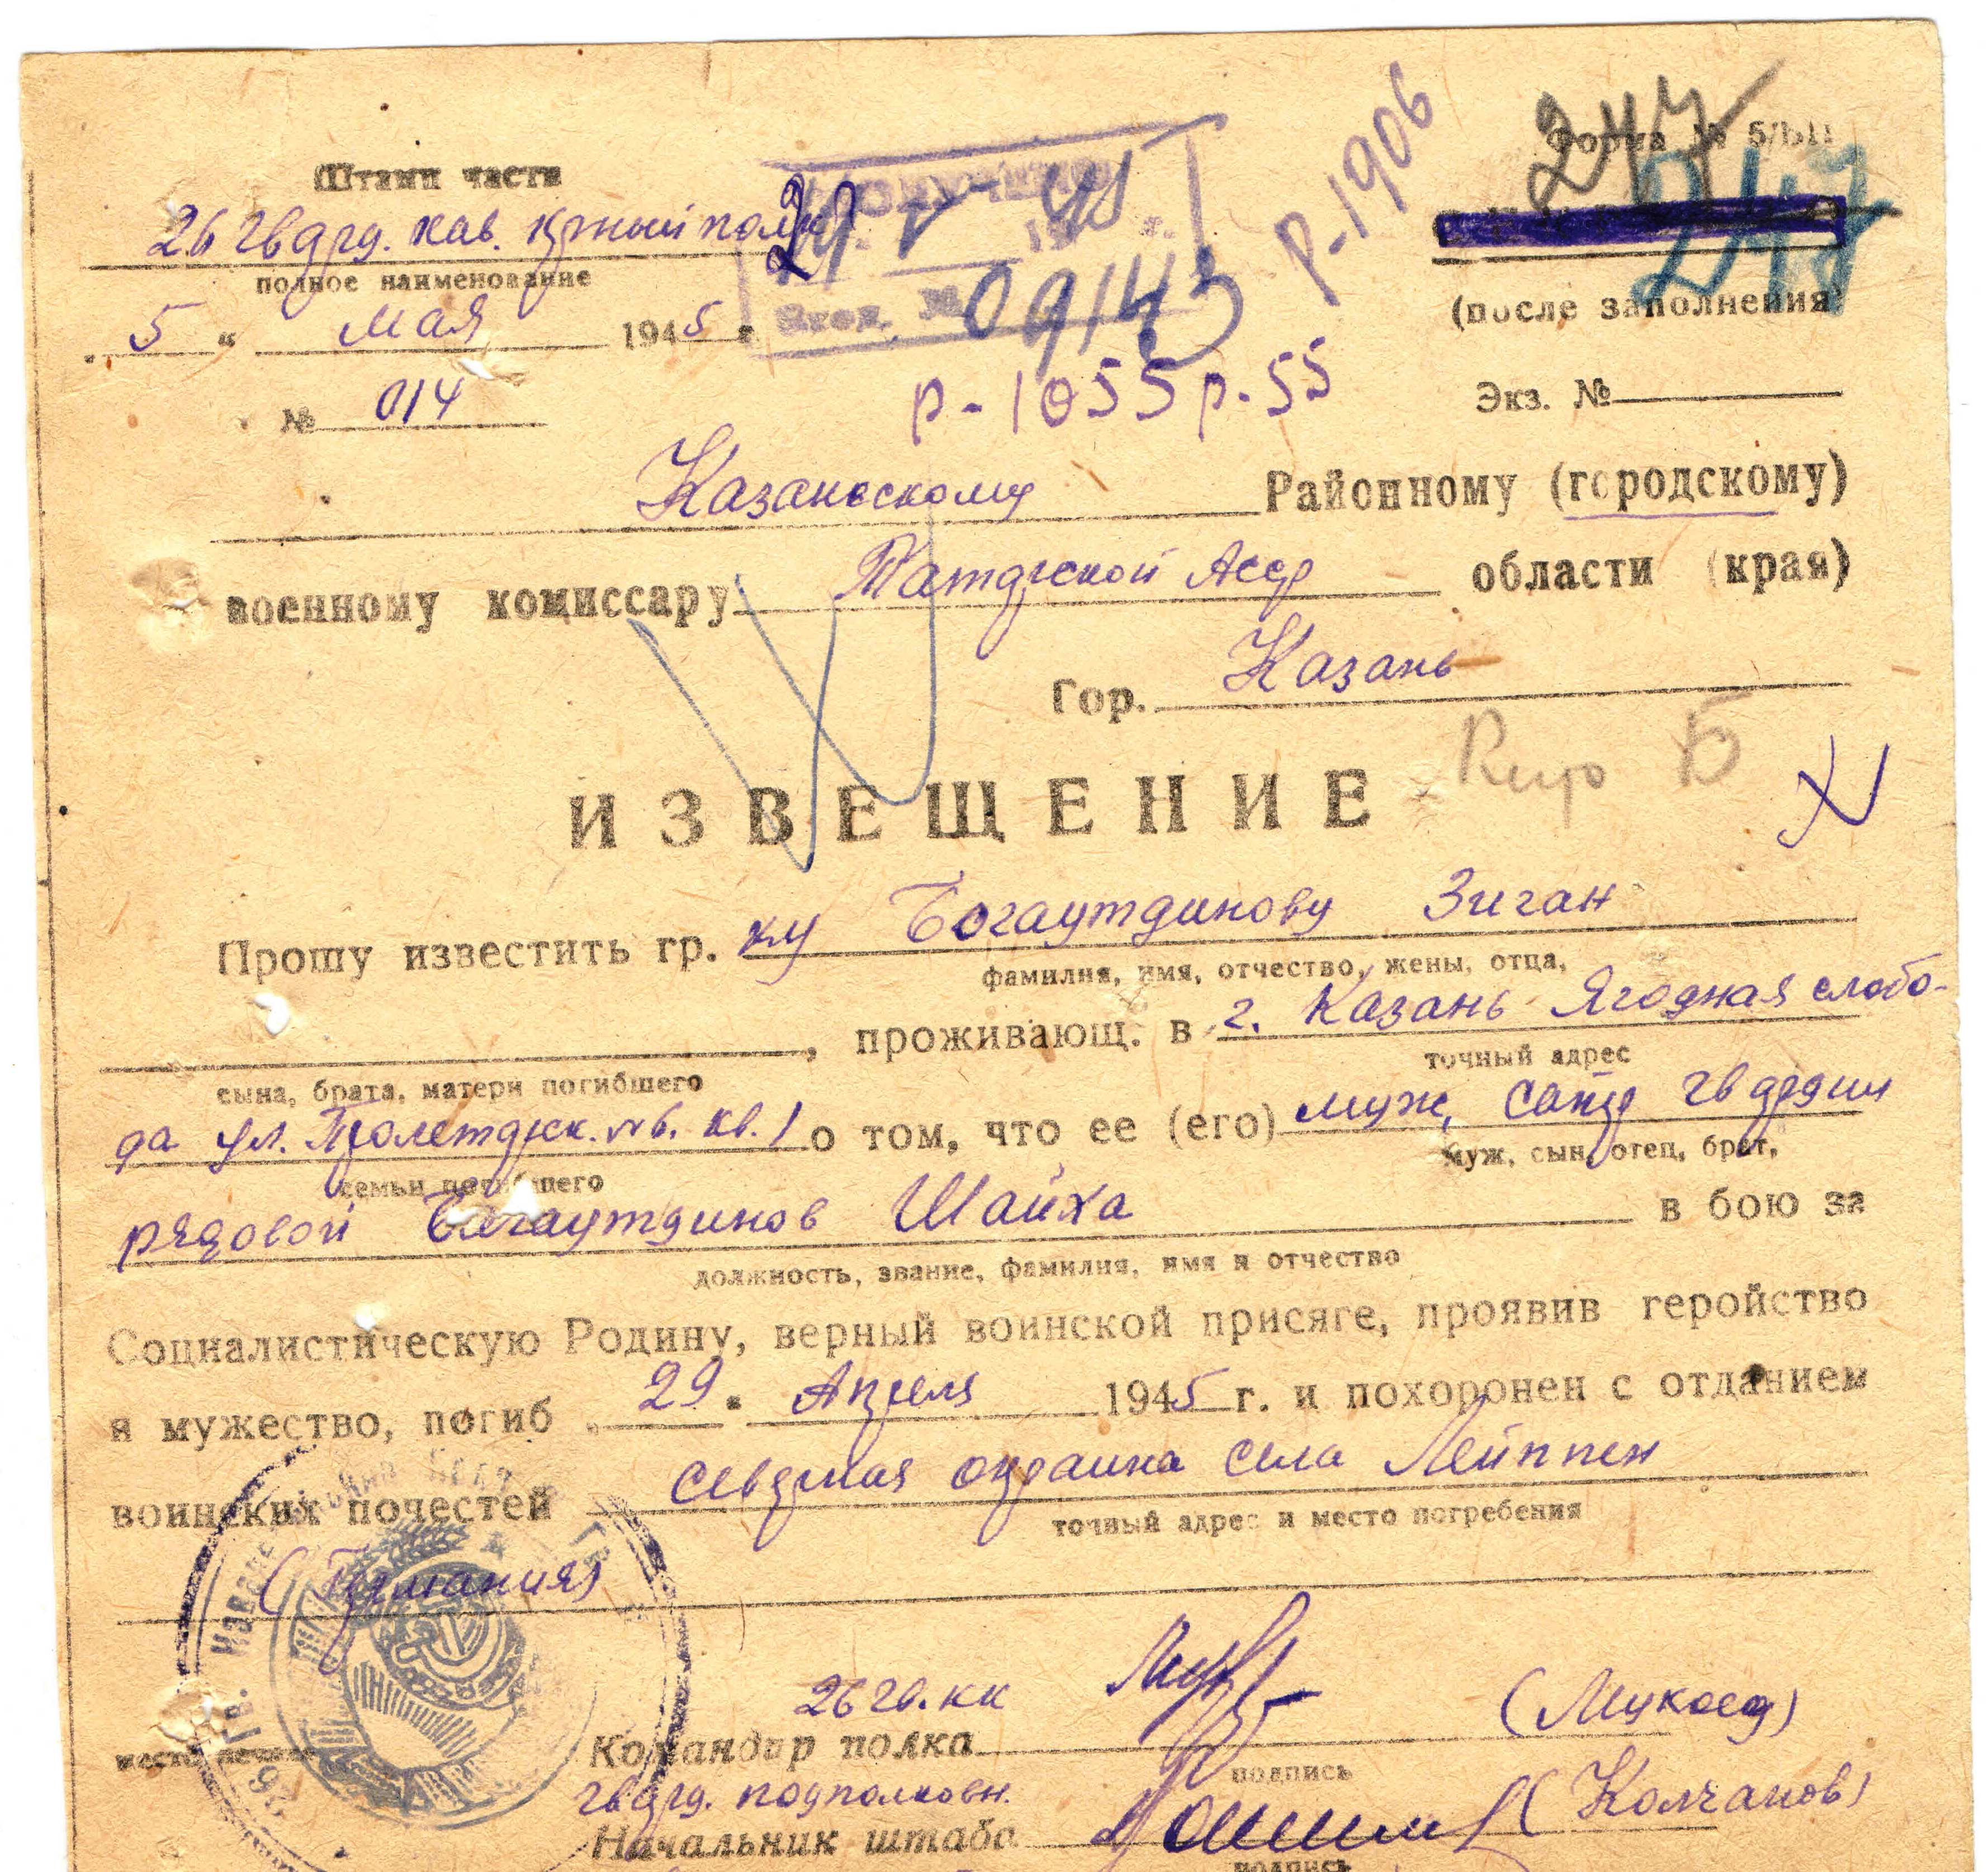 Штамп части
Форма № 5/БП
247
247
26 гвард. кав. Крный полк
полное наименование
(после заполнения)
29 V 45
Р-1906
"5" мая 1945 г.
Вход. № 09143
№ 014
р-1055 р.55
Экз. №
Казанскому Районному (городскому)
военному комиссару Татарской Асср области (края)
Гор. Казань
ИЗВЕЩЕНИЕ
Б
Прошу известить гр. ку Богаутдинову Зиган
фамилия, имя, отчество, жены, отца,
, проживающ. в г. Казань Ягодная слобо-
сына, брата, матери погибшего точный адрес
да ул. Пролетарск. №6. кв. 1 о том, что ее (его) муж, гвардии
семьи погибшего муж, сын, отец, брат,
рядовой Багаутдинов Шайха в бою за
должность, звание, фамилия, имя и отчество
Социалистическую Родину, верный воинской присяге, проявив геройство
и мужество, погиб "29" Апреля 1945 г. и похоронен с отданием
воинских почестей северная окраина села Лейппен
точный адрес и место погребения
(Германия)
26 гв. кк
Командир полка (Мукоед)
место печати
подпись
гвард. подполковн.
Начальник штаба (Колчанов)
подпись